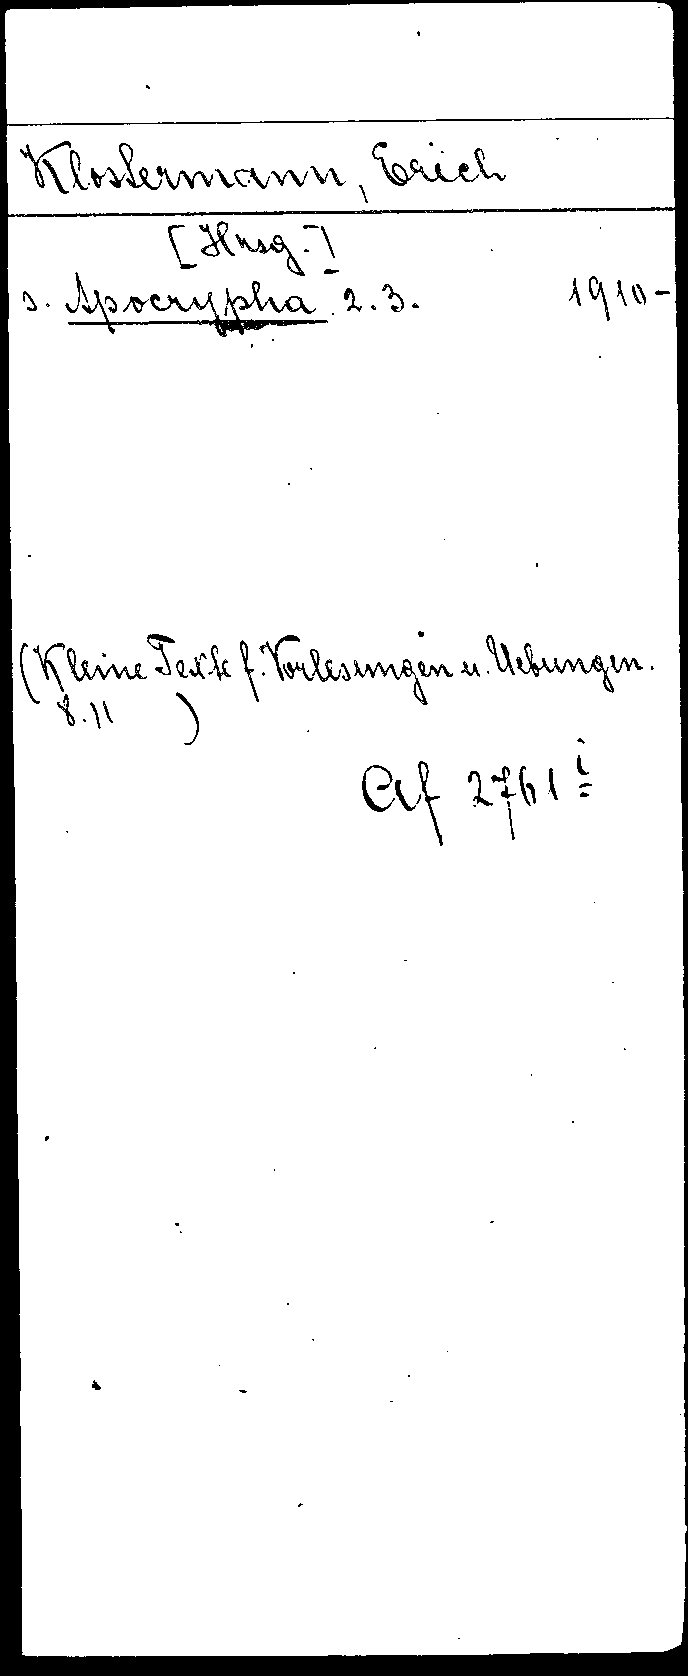 Klostermann, Erich
[Hrsg.]
s. Apocrypha 2.3. 1910-
(Kleine Texte f. Vorlesungen u. Uebungen.
8.11 )
Af 2761 i